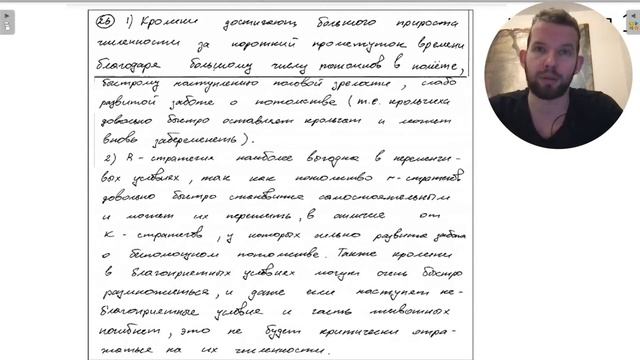 26 1) Кролики достигают большого прироста
численности за короткий промежуток времени
благодаря большому числу потомков в помёте,
быстрому наступлению половой зрелости, слабо
развитой заботе о потомстве (т.е. крольчиха
довольно быстро оставляет крольчат и может
вновь забеременеть).
2) R-стратегия наиболее выгодна в переменчи-
вых условиях, так как потомство r-стратегов
довольно быстро становится самостоятельным
и может их пережить, в отличие от
K-стратегов, у которых сильно развита забота
о беспомощном потомстве. Также кролики
в благоприятных условиях могут очень быстро
размножаться, и даже если наступят не-
благоприятные условие и часть животных
погибнет, это не будет критически отра-
жаться на их численности.